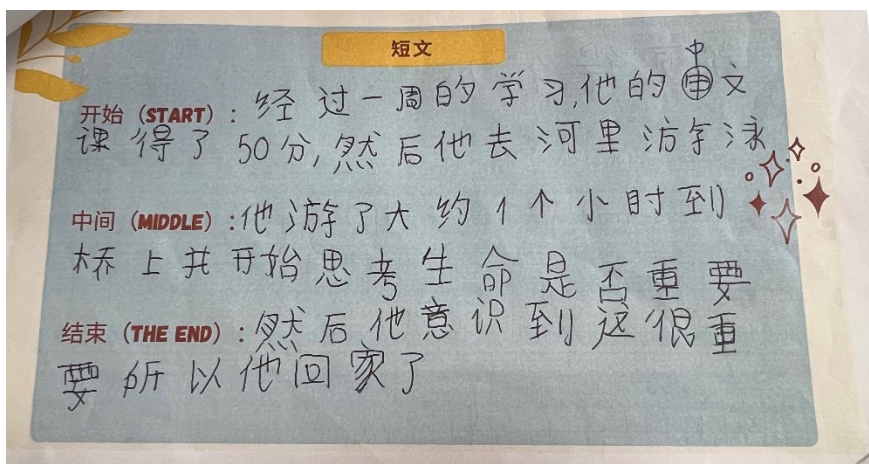 短文
开始（START）：经过一周的学习,他的中文
课得了50分,然后他去河里游泳
中间（MIDDLE）：他游了大约1个小时到
桥上并开始思考生命是否重要
结束（THE END）：然后他意识到这很重
要所以他回家了